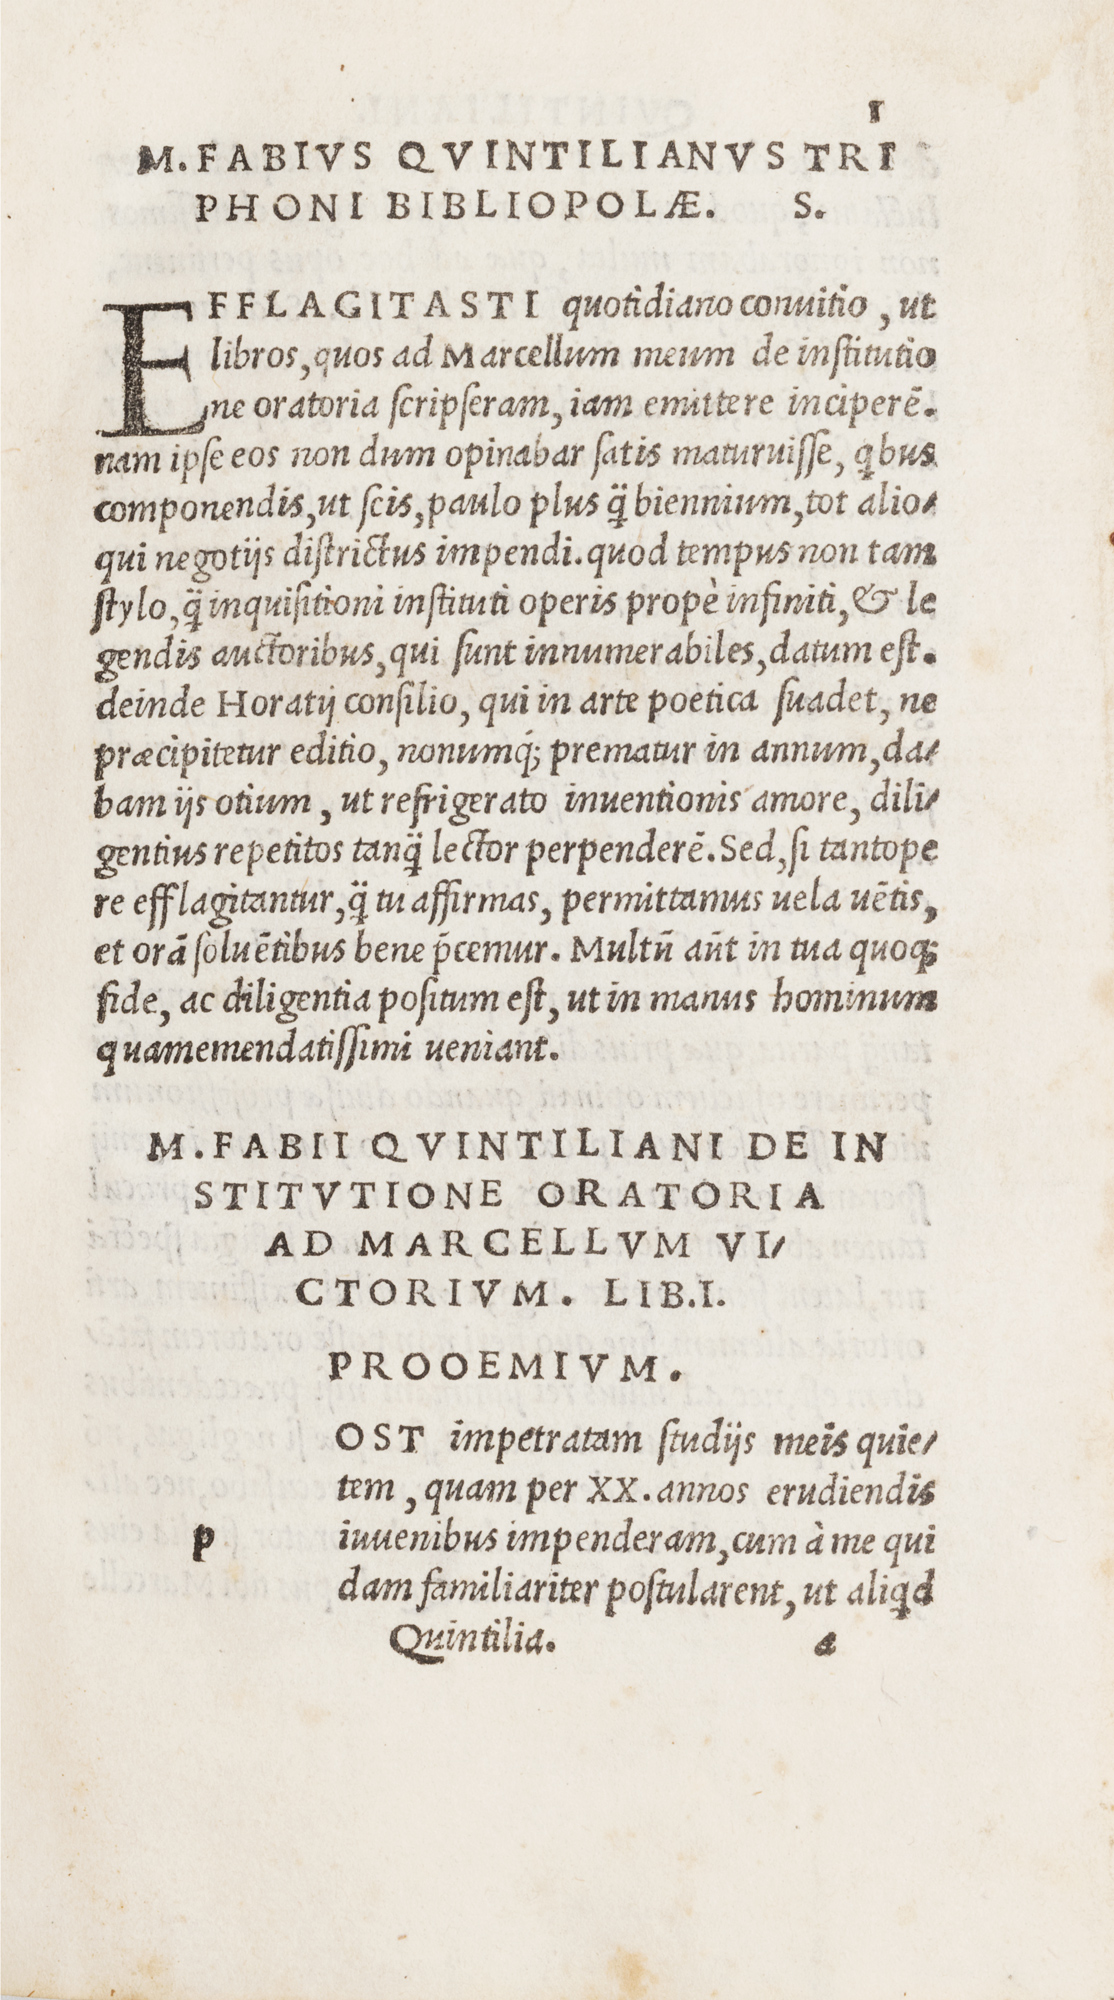 1
M. FABIVS QVINTILIANVS TRI
PHONI BIBLIOPOLÆ. S.
EFFLAGITASTI quotidiano conuitio, ut
libros, quos ad Marcellum meum de institutio
ne oratoria scripseram, iam emittere inciperē.
nam ipse eos non dum opinabar satis maturuisse, qbus
componendis, ut scis, paulo plus q̃ biennium, tot alio/
qui negotijs districtus impendi. quod tempus non tam
stylo, q̃ inquisitioni instituti operis propè infiniti, & le
gendis auctoribus, qui sunt innumerabiles, datum est.
deinde Horatij consilio, qui in arte poetica suadet, ne
præcipitetur editio, nonumq́; prematur in annum, da/
bam ijs otium, ut refrigerato inuentionis amore, dili/
gentius repetitos tanq̃ lector perpenderē. Sed, si tantope
re efflagitantur, q̃ tu affirmas, permittamus uela uētis,
et orā soluētibus bene p̄cemur. Multū aūt in tua quoq;
fide, ac diligentia positum est, ut in manus hominum
quamemendatissimi ueniant.
M. FABII QVINTILIANI DE IN
STITVTIONE ORATORIA
AD MARCELLVM VI/
CTORIVM. LIB.I.
PROOEMIVM.
OST impetratam studijs meis quie/
tem, quam per XX. annos erudiendis
p iuuenibus impenderam, cum à me qui
dam familiariter postularent, ut aliqd
Quintilia. a